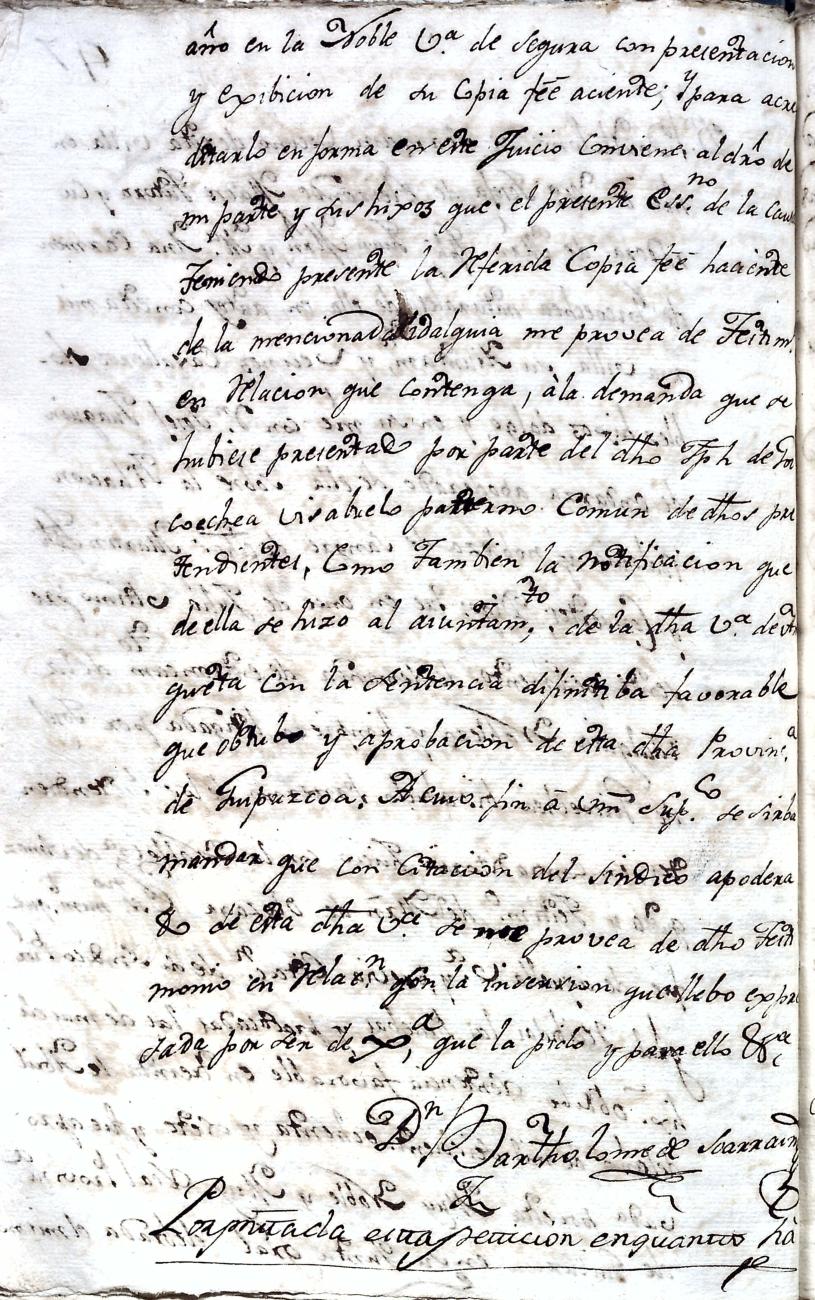 año en la Noble V.ª de Segura con presentacion
y exibicion de su Copia feè aciente; y para acre
ditarlo en forma en este Juicio Comviene al dro de
mi parte y sus hixos que el presente Ess.no de la Cau
Teniendo presente la Referida Copia feè haciente
de la mencionada Hidalguia me provea de Testim.
en Relacion que contenga, àla demanda que se
hubiese presentado por parte del dho Jph de
coechea visabuelo paterno Comun de dhos pre
tendientes, Como Tambien la Notificacion que
de ella se hizo al aiuntam.to de la dha V.ª de
gueta con la Sentencia difinitiba favorable
que obtubo y aprobacion de esta dha Provin.ª
de Guipuzcoa; A cuio fin â vm Sup.co se sirba
mandar que con Citacion del sindico apodera
do de esta dha V.ª se me provea de dho Testi
monio en Relaz.n con la insercion que llebo expre
sada por ser de Xª, que la pido y para ello &ª
Dn Bartholome de Ibarra
Por presentada esta peticion en quanto há